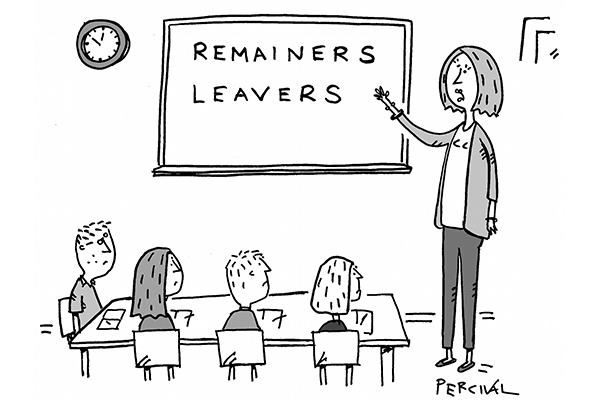 REMAINERS
LEAVERS
PERCIVAL